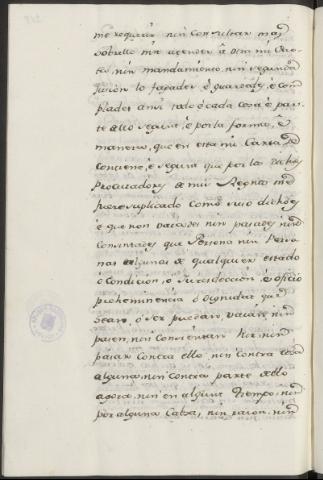 me requerir nin Consultar mas
sobrello nin atender â otra mi Car
ta, nin mandamiento, nin segunda
jusion lo fagades, è guardedes, è cum
plades ansi todo è cada cosa è par
te dello segunt, è por la forma, è
manera, que en esta mi Carta se
contiene, è segunt que por los dichos
Procuradores de mis Regnos me
fue suplicado como suso dicho es
è que non vaiades nin pasedes, nin
Consintades que Persona nin Perso
nas algunas de qualquier estado
ò Condicion, ò Jurisdiccion è oficio
preheminencia ò Dignidat que
sean, ò ser puedan, vaian nin
pasen, nin Consientan hir, nin
pasar contra ello, nin contra cosa
alguna, nin contra parte dello
agora, nin en algunt tiempo, nin
por alguna Causa, nin razon, nin